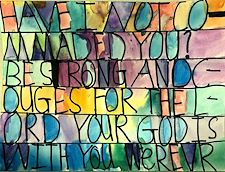 HAVE I NOT CO
MMADED YOU?
BE STRONG AND C
OUGES FOR THE L
ORD YOUR GOD IS
WITH YOU WEREVR